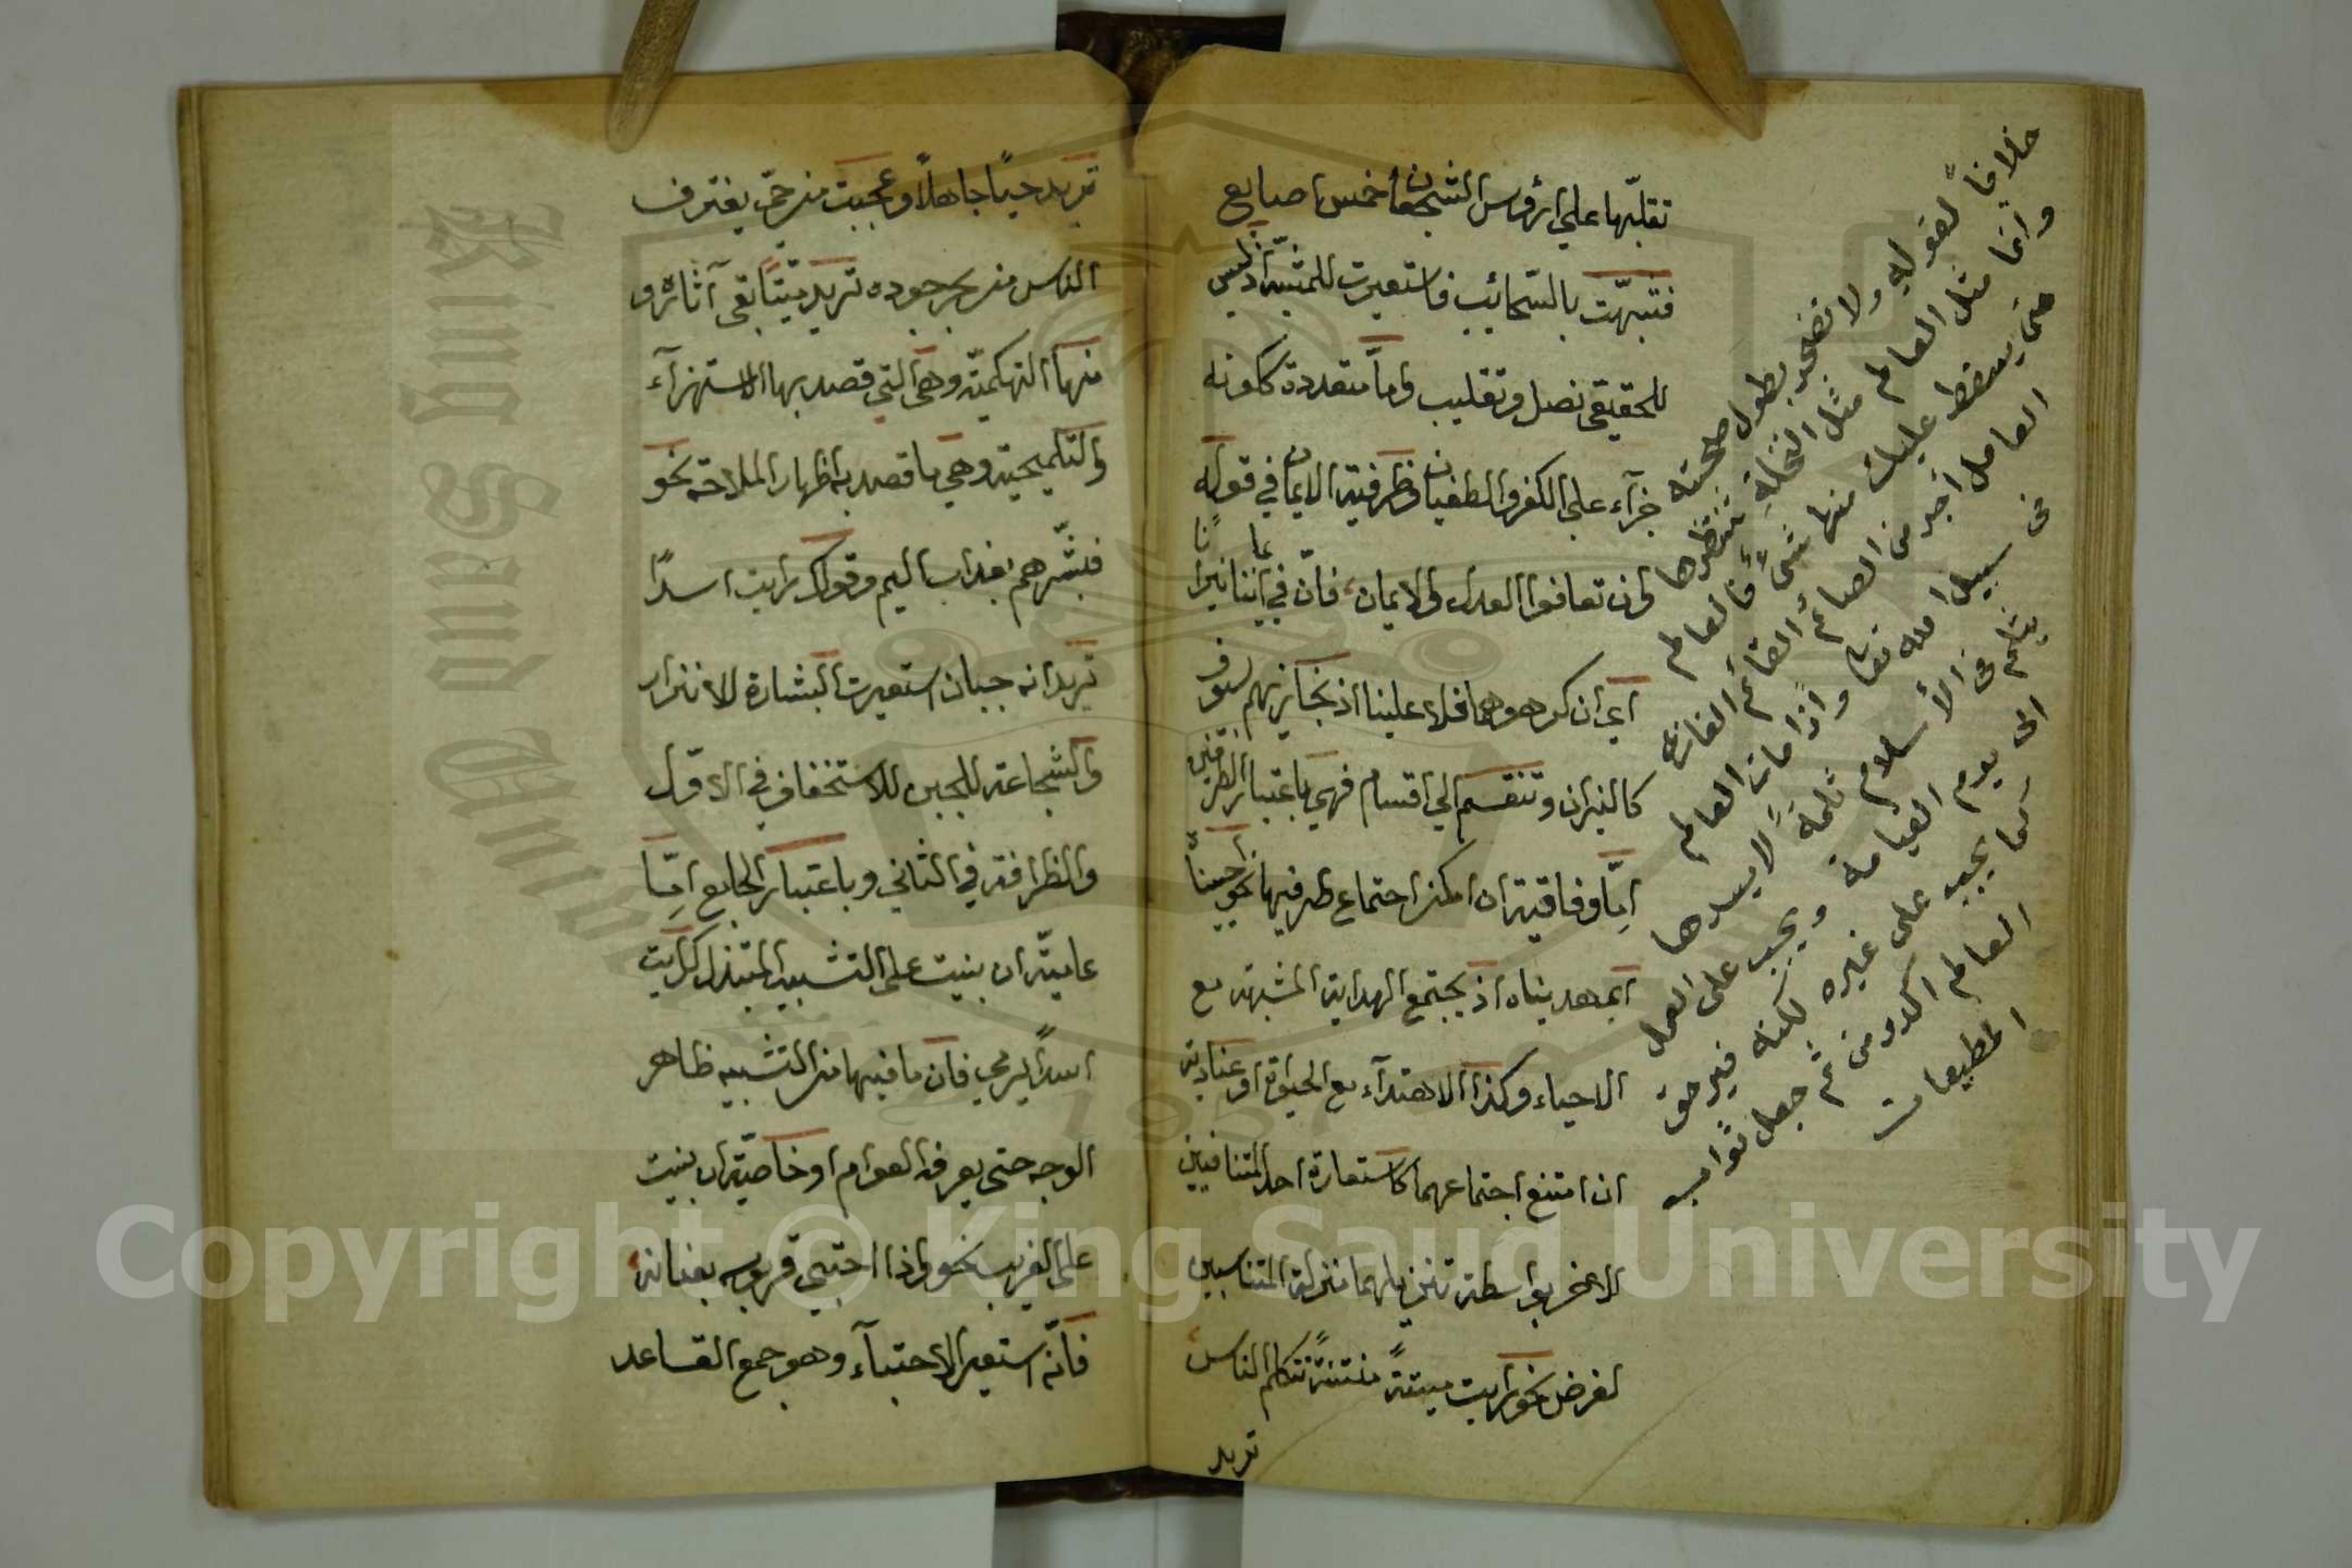 تقلّبها على ارؤس الشجعان خمس اصابع
فشبهّت بالسّحائب فاستعيرت للمشبّه اذ ليس
للحقيقي نصل وتقليب وامّا متعددة ككونه
جزآء على الكفر والطغيان وظرفية الايمان في قوله
وان تعافوا العدل والايمان، فانّ في ايماننا نيرانًا
اي ان كرهوهما فلاء علينا اذ نجازيهم بسيوف
كالنيران وتنقسم الى اقسام فهي باعتبار الطرفين
امّا وفاقية ان امكن اجتماع طرفيها نحو احييناه
اي هديناه اذ يجتمع الهداية المشبهة مع
الاحياء وكذا الاهتدآء مع الحيوة او عنادية
ان امتنع اجتماعهما كاستعارة احد المتنافيين
للاخر بواسطة تنزيلهما منزلة المتناسبين
لغرض نحو رايت ميتةً منتنةً تتكلم الناس
تريد
خلافًا لقوله ولا تضجر بطول صحبته
وانما مثل العالم مثل النخلة تنتظرها
متى يسقط عليك منها شىءٌ فالعالم
العامل اجر من الصائم القائم الغازى
فى سبيل الله تعا واذا مات العالم
يثلم فى الأسلام ثلمة لا يسدها
الى يوم القيامة ويجب على العمل
كما يجب على غيره لكنه فيرحق
العالم اكد ومن ثم جعل ثواب
المطيعات
تريد حيًا جاهلاً وعجبت من حيّ يغترف
الناس من بحر جوده تريد ميّتًا بقى آثاره و
منها التهكميّة وهى التى قصد بها الاستهزآء
والتلميحية وهي ما قصد به اظهار الملاحة نحو
فبشّرهم بعذاب اليم وقولك رايت اسدًا
تريد انه جبان استعيرت البشارة للانذار
والشجاعة للجبن للاستخفاف في الاول
والظرافة في الثاني وباعتبار الجامع امّا
عاميّة ان بنيت على التشبيه المبتذل كرايت
اسدًا يرمي فان ما فيها من التشبيه ظاهر
الوجه حتى يعرفه العوام او خاصيّة ان بنيت
على الغريب نحو واذا احتبي قربوسه بعنانه
فانّه استعير الاحتبآء وهو جمع القاعد
Copyright © King Saud University
King Saud University
1957